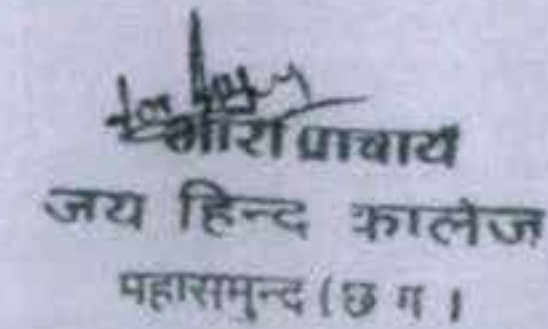 प्राचार्य
जय हिन्द कालेज
महासमुन्द (छ ग )